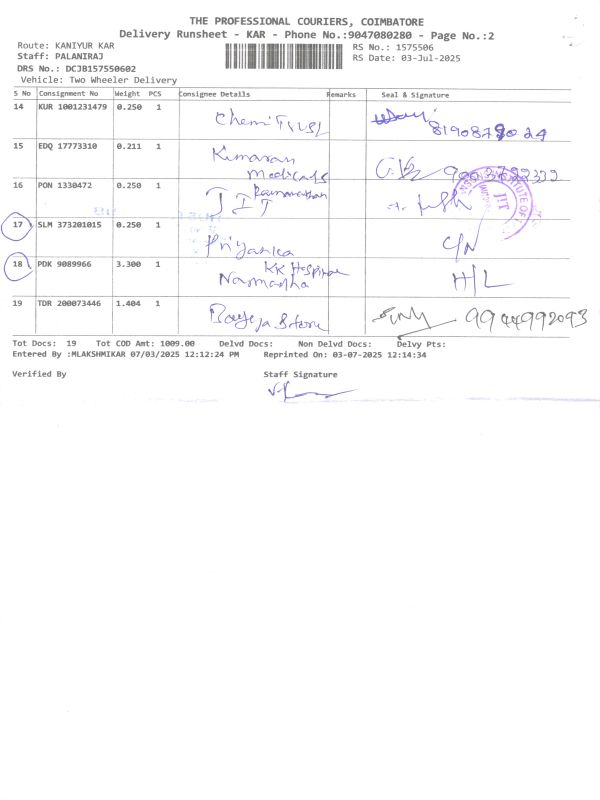 THE PROFESSIONAL COURIERS, COIMBATORE
Delivery Runsheet - KAR - Phone No.:9047080280 - Page No.:2
Route: KANIYUR KAR RS No.: 1575506
Staff: PALANIRAJ RS Date: 03-Jul-2025
DRS No.: DCJB157550602
Vehicle: Two Wheeler Delivery
S No Consignment No Weight PCS Consignee Details Remarks Seal & Signature
14 KUR 1001231479 0.250 1
81908
15 EDQ 17773310 0.211 1
Kumaran
Medicals
16 PON 1330472 0.250 1
JIT
17 SLM 373201015 0.250 1
Priyanka C/N
18 PDK 9089966 3.300 1
KK Hospital
Narmadha H/L
19 TDR 200073446 1.404 1
Store 9944992093
Tot Docs: 19 Tot COD Amt: 1009.00 Delvd Docs: Non Delvd Docs: Delvy Pts:
Entered By :MLAKSHMIKAR 07/03/2025 12:12:24 PM Reprinted On: 03-07-2025 12:14:34
Verified By Staff Signature